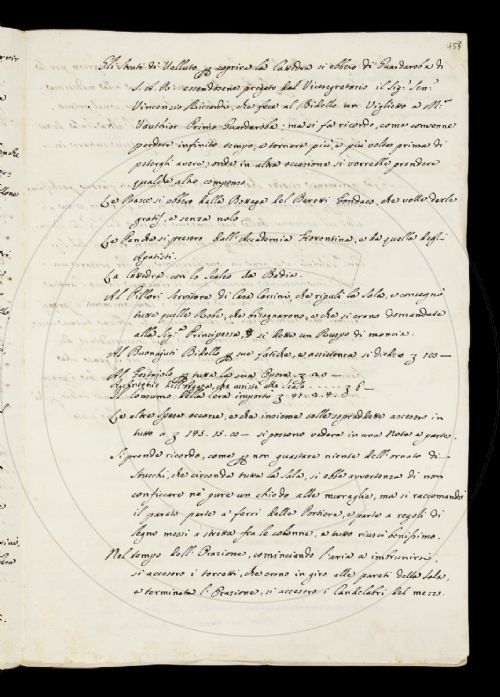 153
Gli Strati di Velluto p coprire la Cattedra si ebbero di Guardaroba di
S. A. R. essendosene pregato dal Vicesegretario il Sig.r Sen.
Vincenzio Riccardi, che fece al Bidello un Viglietto a M.r
Vauthier Primo Guardaroba: ma si fa ricordo, come convenne
perdere infinito tempo, e tornare più, e più volte prima di
potergli avere; onde in altra occasione si vorrebbe prendere
qualche altro compenso.
Le Panche si ebbero dalla Bottega del Fondaco, che volle darle
gratis, e senza nolo.
Le Panche si presero dall'Accademia Fiorentina, e da quella degl'
Apatisti.
La Cattedra con lo Scaleo da Badia.
Al Pillori Servitore di Casa Corsini, che ripulì la Sala, e consegnò
tutte quelle Robe, che bisognarono, e che si erano domandate
alla Sig.ra Principessa, si dette un Ruspo di mancia.
Al Buonajuti Bidello p sue fatiche, e assistenza si diedero 100 —
Al p tutta la sua Opera 20 —
che assisté alle Scale . . . . . . 6 —
Consumo della Cera importò 41. 2. 8
Le altre spese occorse, e che insieme colle sopraddette ascesero in
tutto a 195. 15. — si possono vedere in una Nota a parte.
Si prende ricordo, come p non guastare niente dell'ornato di
Stucchi, che circonda tutta la Sala, si ebbe avvertenza di non
conficcare nè pure un chiodo alle muraglie, ma si raccomandò
il parato parte a ferri delle Portiere, e parte a regoli di
legno messi a stretta fra le colonne, e tutto riuscì benissimo.
Nel tempo dell'Orazione, cominciando l'aria a imbrunirsi,
si accesero i torcetti, che erano in giro alle pareti della Sala,
e terminata l'Orazione, si accesero i Candelabri del mezzo.